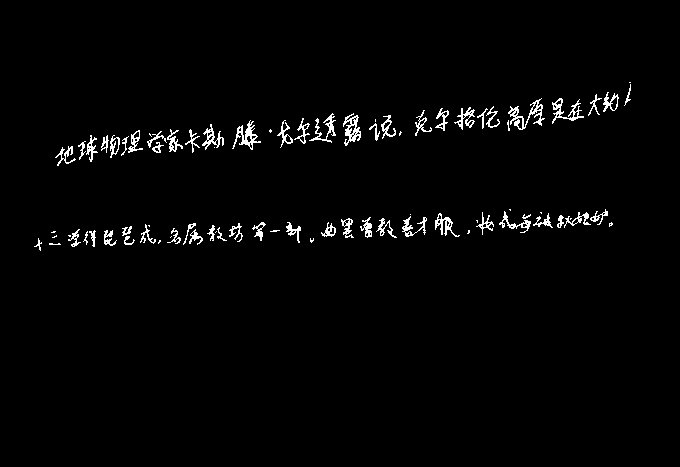 地球物理学家卡斯滕·戈尔透露说,克尔格伦高原是在大约1
十三学得琵琶成,名属教坊第一部。曲罢曾教善才服,妆成每被秋娘妒。